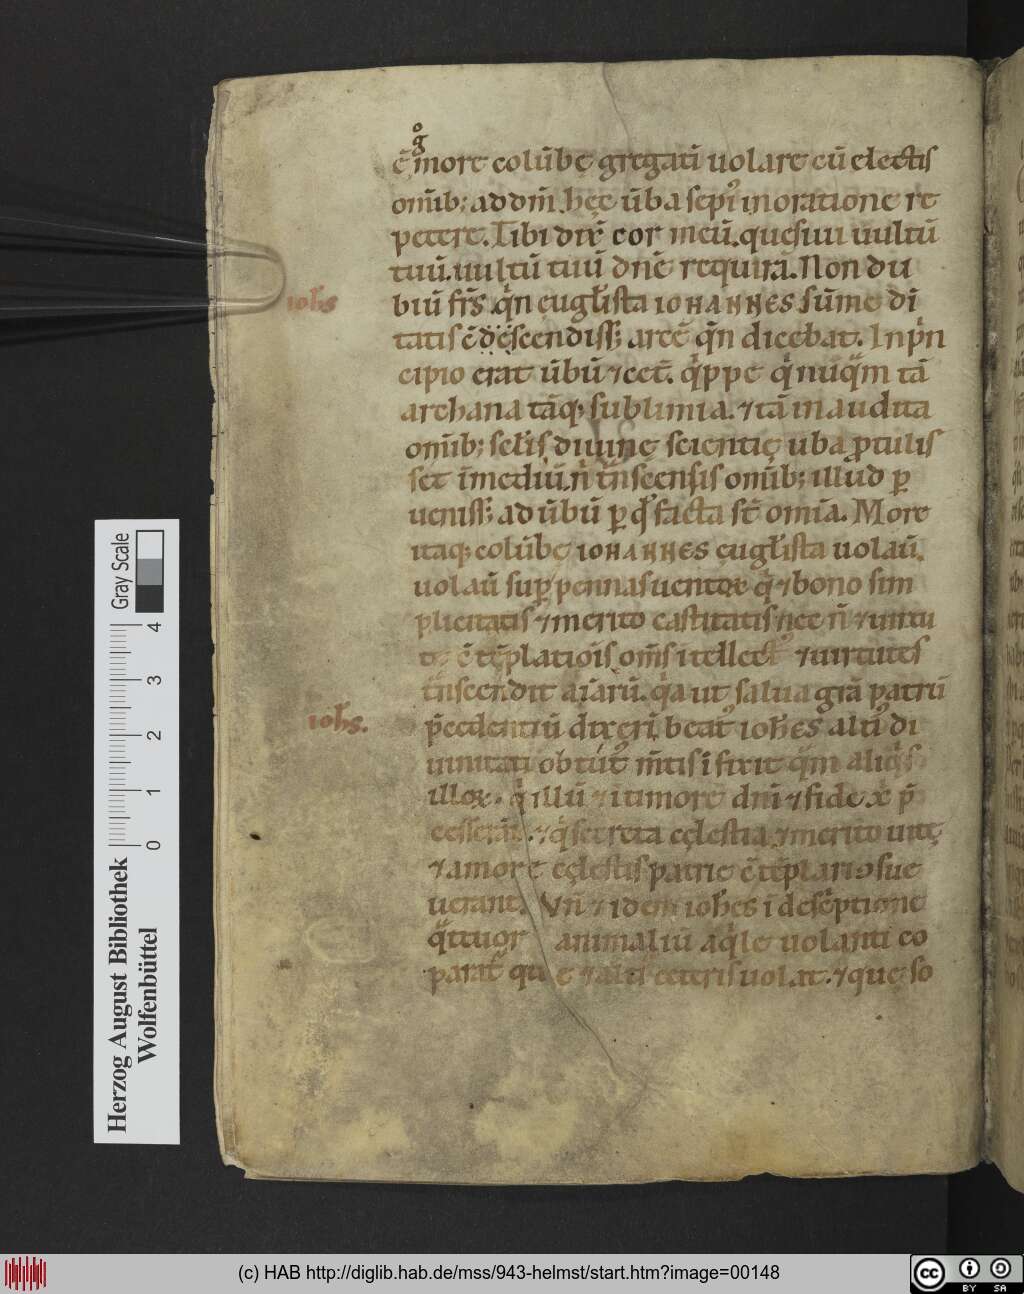 g̊
ē more colūbę gregati uolare cū electis
om̄ib; ad dm̄. hęc ūba sepi᷒ in oratione re
petere. Tibi dix̄ cor meū. quesiui uultū
tuū. uultū tuū dn̄e requirā. Non du
ioh̅s
biū fr̄s. qn̄ ęuglísta IOHANNES sūme di
tatis ē descendiss; arcē qn̄ dicebat. Inpn
cipio erat ūbū ⁊ cet̄. qppe q nūqm tā
archana tāq; sublimia. ⁊ tā inaudita
om̄ib; sclis diuinę scientię ūba ptulis
set īmediū. n̄ tn̄scensis om̄ib; illud p
ueniss; ad ūbū p qd facta st̄ om̄ia. More
itaq; colūbę IOHANNES ęuglísta uolau.
uolau sup pennas uentoꝝ q ⁊ bono sim
plicitatis ⁊ merito castitatis nec n̄ ⁊ uirtu
te ē tēplatiois om̄s itellect᷒ ⁊ uirtutes
tn̄scendit aiarū. qa ut salua gr̄a patrū
ioh̅s.
p̄cedentiū dixeri beat᷒ ioh̅es alti᷒ di
uinitati obtut᷒ m̄tis ī fixit qm aliqs
illoꝝ. q illū ⁊ ī timore dn̄i ⁊ fide xp̄ p̄
cesserāt. ⁊ q secreta cęlestia. ⁊ merito uitę
⁊ amore cęlestis patrie ē tēplari ᵓsue
uerant. Vn̄ ⁊ idem ioh̅es ī descptione
qttuor animaliū aqle uolanti cō
parat᷒ que ⁊ alti᷒ ceteris uolat. ⁊ que so
Herzog August Bibliothek
Wolfenbüttel
0 1 2 3 4
Gray Scale
(c) HAB http://diglib.hab.de/mss/943-helmst/start.htm?image=00148
cc BY SA